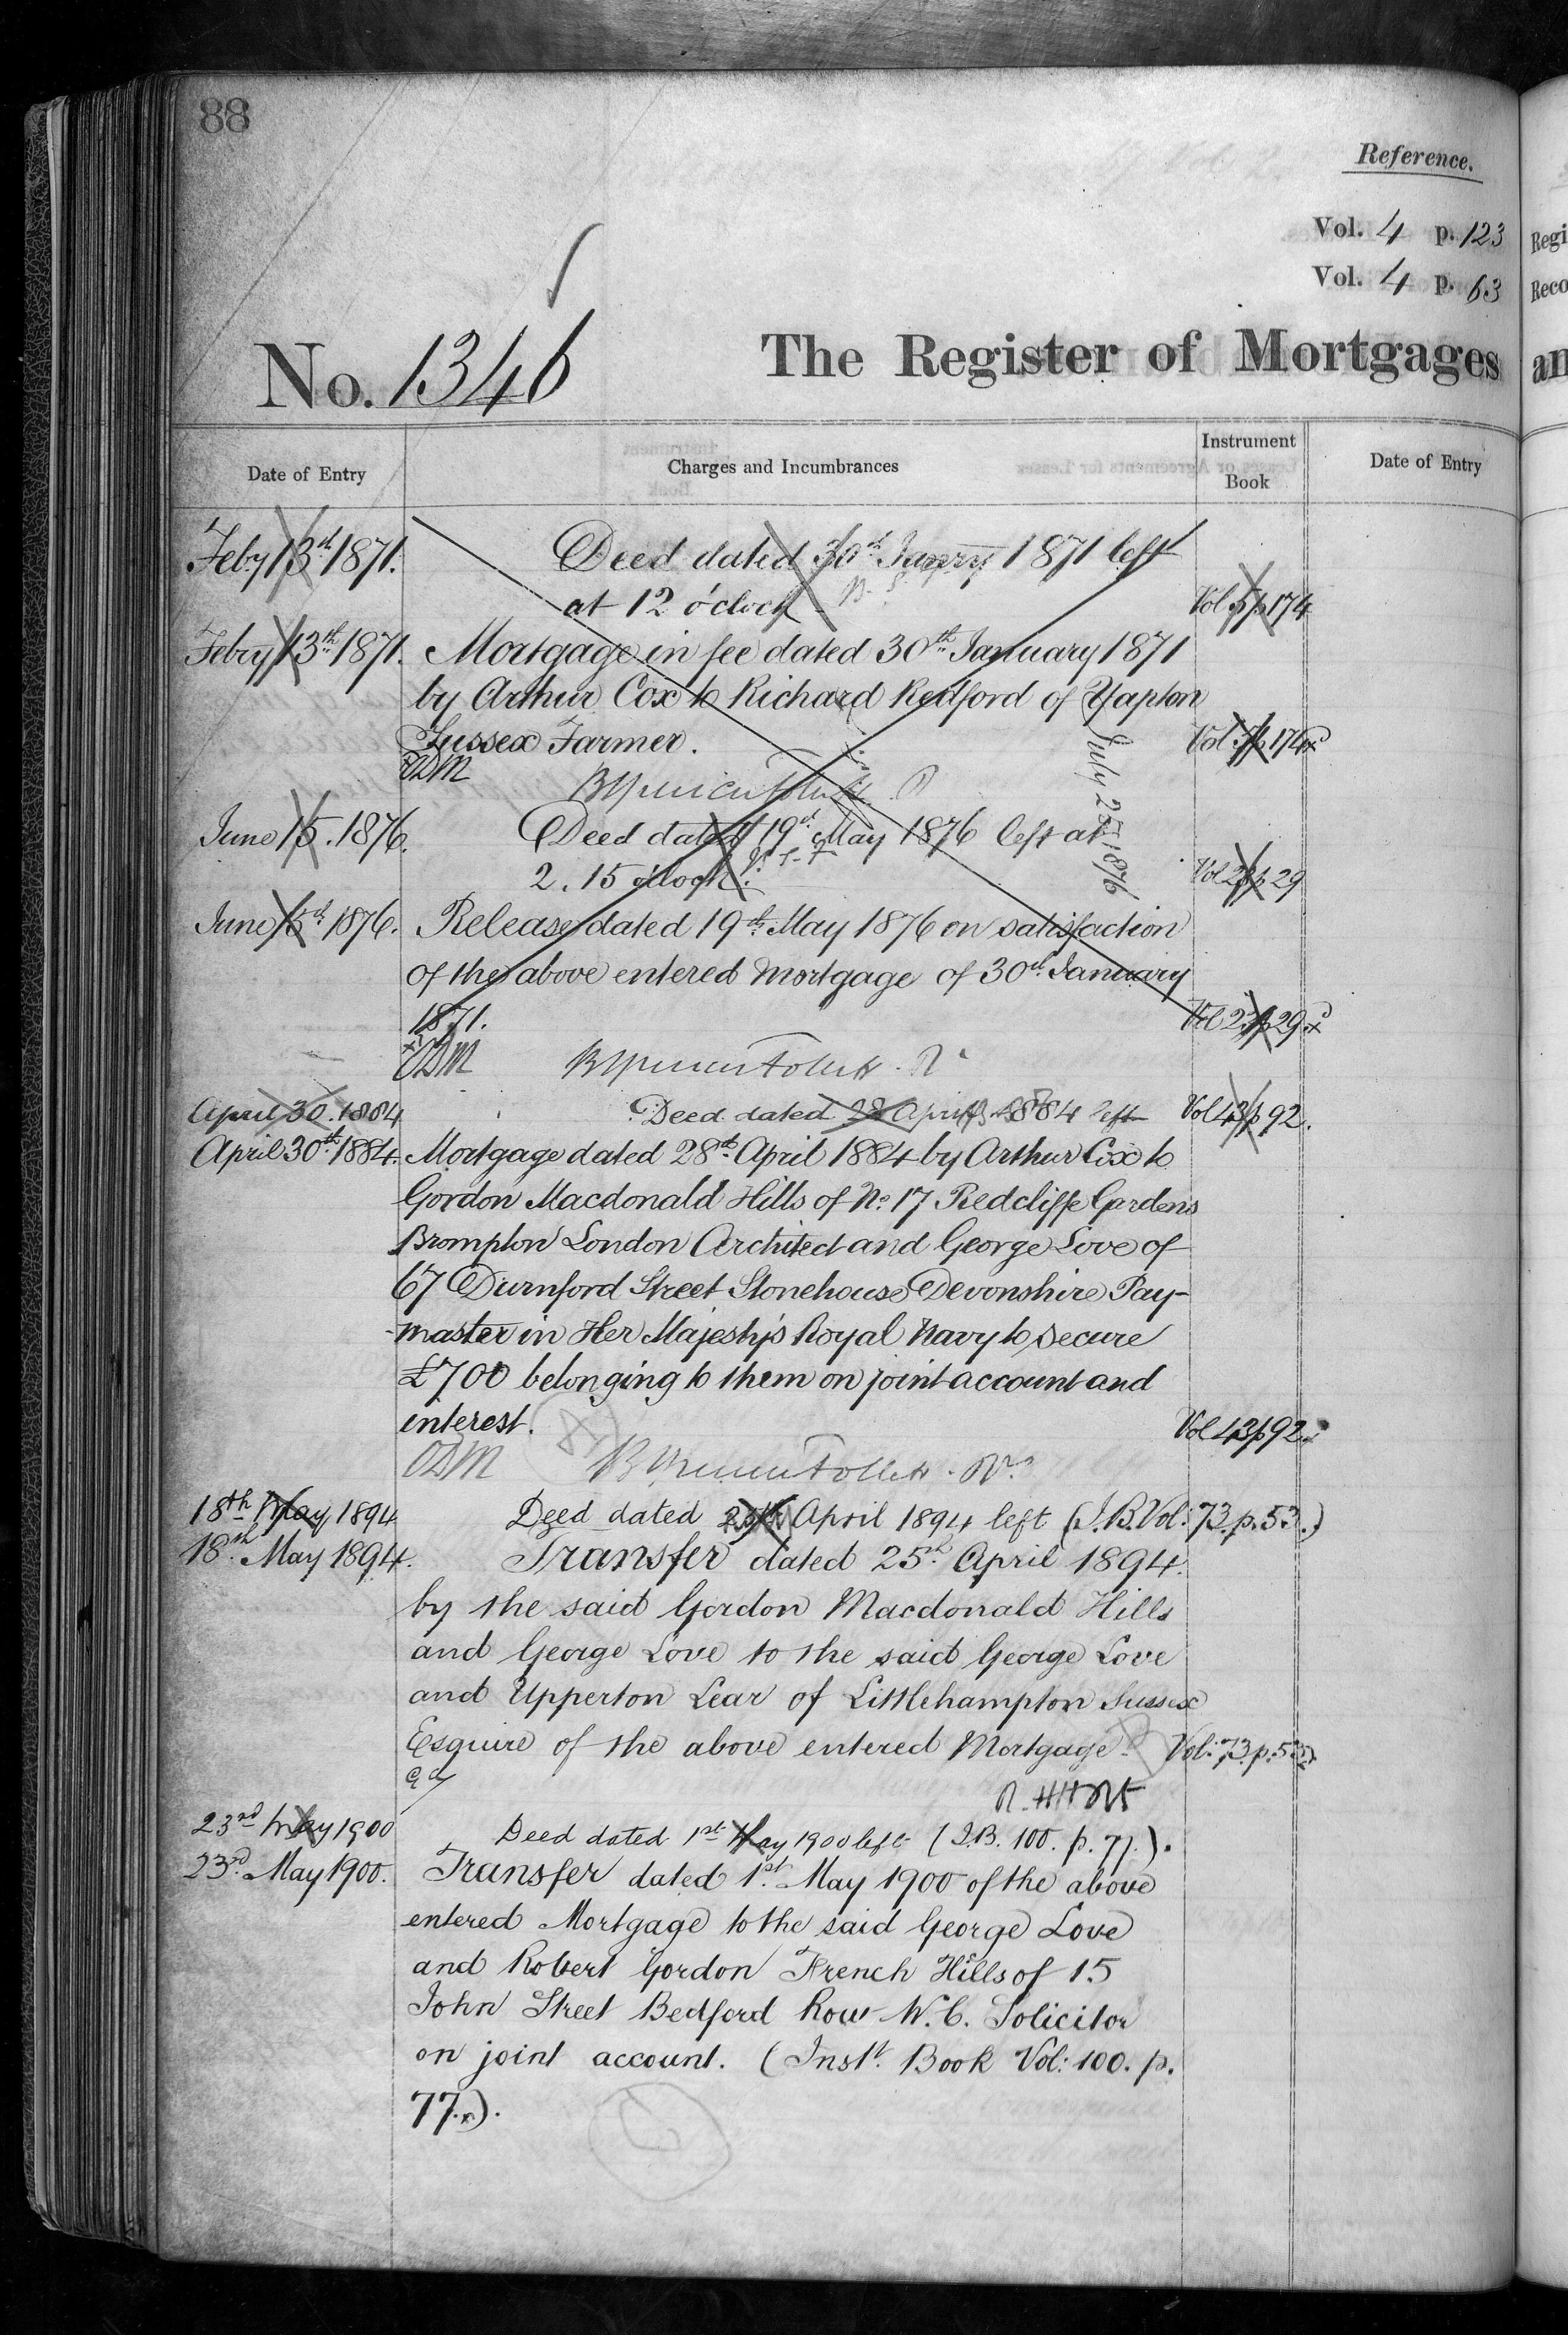 88
Reference.
Vol. 4 p. 123
Vol. 4 p. 63
No. 1346
The Register of Mortgages
Date of Entry
Charges and Incumbrances
Instrument Book
Date of Entry
Regi
Reco
an
Feby 13th 1871. Deed dated 30th Janry 1871 left
at 12 o'clock Vol p 174
Febry 13th 1871. Mortgage in fee dated 30th January 1871
by Arthur Cox to Richard Redford of Yapton
Sussex Farmer. Vol p 174
ODM
July 25 1876
June 15. 1876. Deed dated 19th May 1876 left at
2.15 o'clock. Vol 23 p 29
June 15th 1876. Release dated 19th May 1876 on satisfaction
of the above entered Mortgage of 30th January
1871. Vol 23 p 29
ODM
April 30. 1884 Deed dated 28 April 1884 left Vol 43 p 92.
April 30th 1884. Mortgage dated 28th April 1884 by Arthur Cox to
Gordon Macdonald Hills of No. 17 Redcliffe Gardens
Brompton London Architect and George Love of
67 Durnford Street Stonehouse Devonshire Pay-
master in Her Majesty's Royal Navy to secure
£700 belonging to them on joint account and
interest. Vol 43 p 92
ODM
18th May 1894 Deed dated 25th April 1894 left (I.B. Vol: 73. p. 53.)
18th May 1894. Transfer dated 25th April 1894.
by the said Gordon Macdonald Hills
and George Love to the said George Love
and Upperton Lear of Littlehampton Sussex
Esquire of the above entered Mortgage. Vol: 73. p. 53
23rd May 1900 Deed dated 1st May 1900 left (I.B. 100. p. 77.).
23rd May 1900. Transfer dated 1st May 1900 of the above
entered Mortgage to the said George Love
and Robert Gordon French Hills of 15
John Street Bedford Row W.C. Solicitor
on joint account. (Inst. Book Vol: 100. p.
77.).